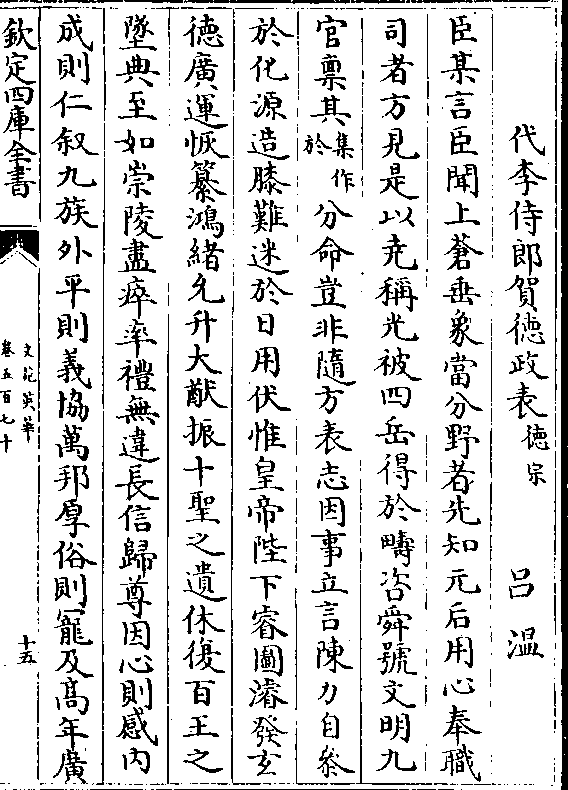 代李侍郎賀德政表德宗 呂溫
臣某言臣聞上蒼垂象當分野者先知元后用心奉職
司者方見是以堯稱光被四岳得於疇咨舜號文明九
官禀其集作於分命豈非隨方表志因事立言陳力自叅
於化源造膝難迷於日用伏惟皇帝陛下睿圖濬發玄
德廣運恢纂鴻緒允升大猷振十聖之遺休復百王之
墜典至如崇陵盡瘁率禮無違長信歸尊因心則感内
成則仁叙九族外平則義協萬邦厚俗則寵及高年廣
欽定四庫全書
文苑英華
卷五百七十
十五